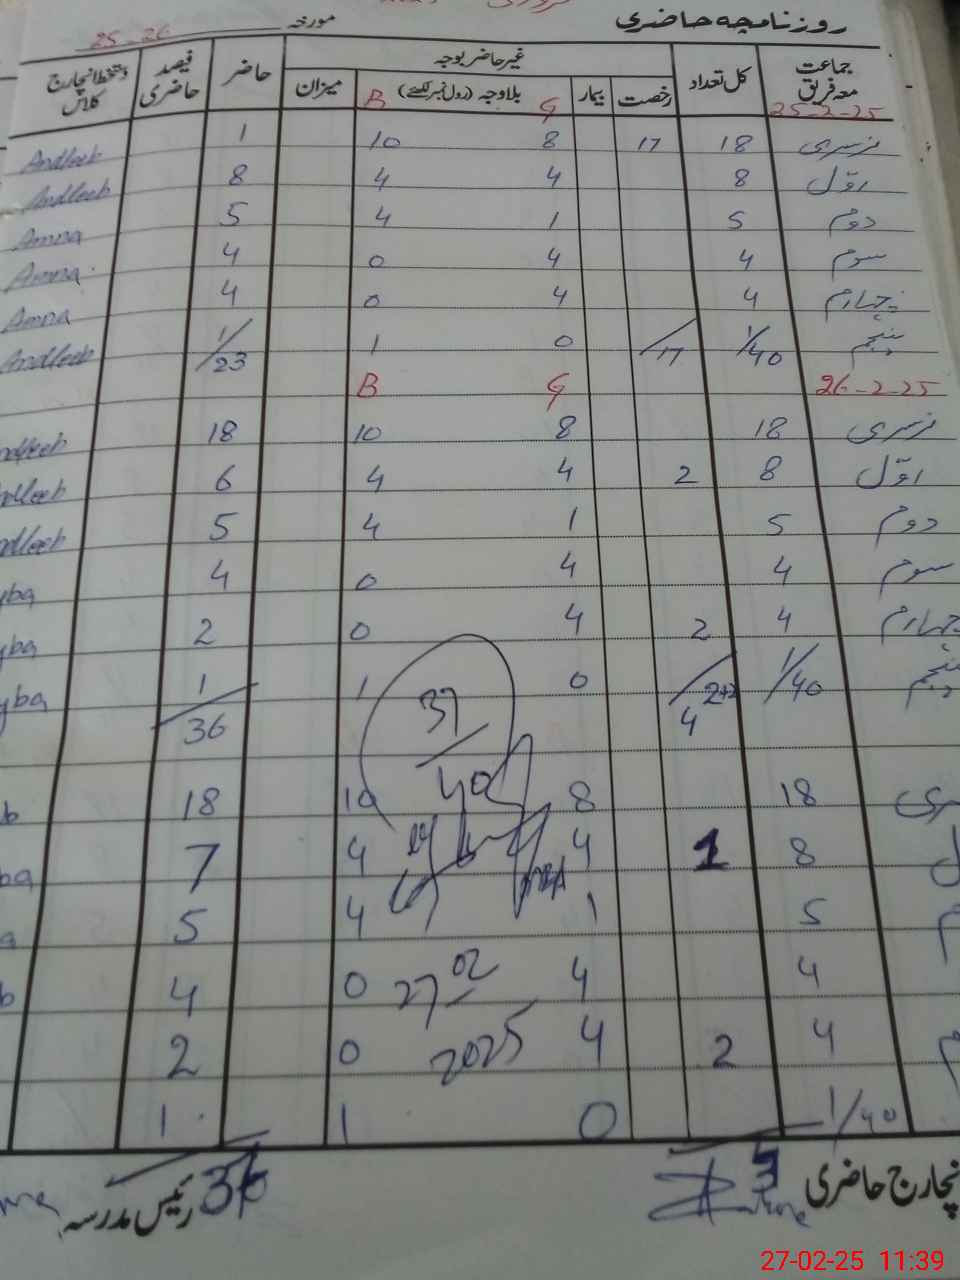 روزنامچہ حاضری مورخہ 25-26
جماعت معہ فریق کل تعداد غیر حاضر بوجہ حاضر فیصد حاضری دستخط انچارج کلاس
رخصت بیمار بلاوجہ (رول نمبر لکھئے) میزان
25-2-25 G B
نرسری 18 17 8 10 1 Andleeb
اوّل 8 4 4 8 Andleeb
دوم 5 1 4 5 Amna
سوم 4 4 0 4 Amna
چہارم 4 4 0 4 Amna
پنجم 1/40 /17 0 1 1/23 Andleeb
26-2-25 G B
نرسری 18 8 10 18 ndleeb
اوّل 8 2 4 4 6 ndleeb
دوم 5 1 4 5 ndleeb
سوم 4 4 0 4 yba
چہارم 4 2 4 0 2 yba
پنجم 1/40 2+2 0 1 1 yba
4 37/40 36
سری 18 8 10 18 b
ل 8 1 4 4 7 ba
م 5 1 4 5 a
4 4 0 4 b
م 4 2 4 0 2
1/40 0 1 1
27/02
2025
نچارج حاضری 3 رئیس مدرسہ 36
27-02-25 11:39